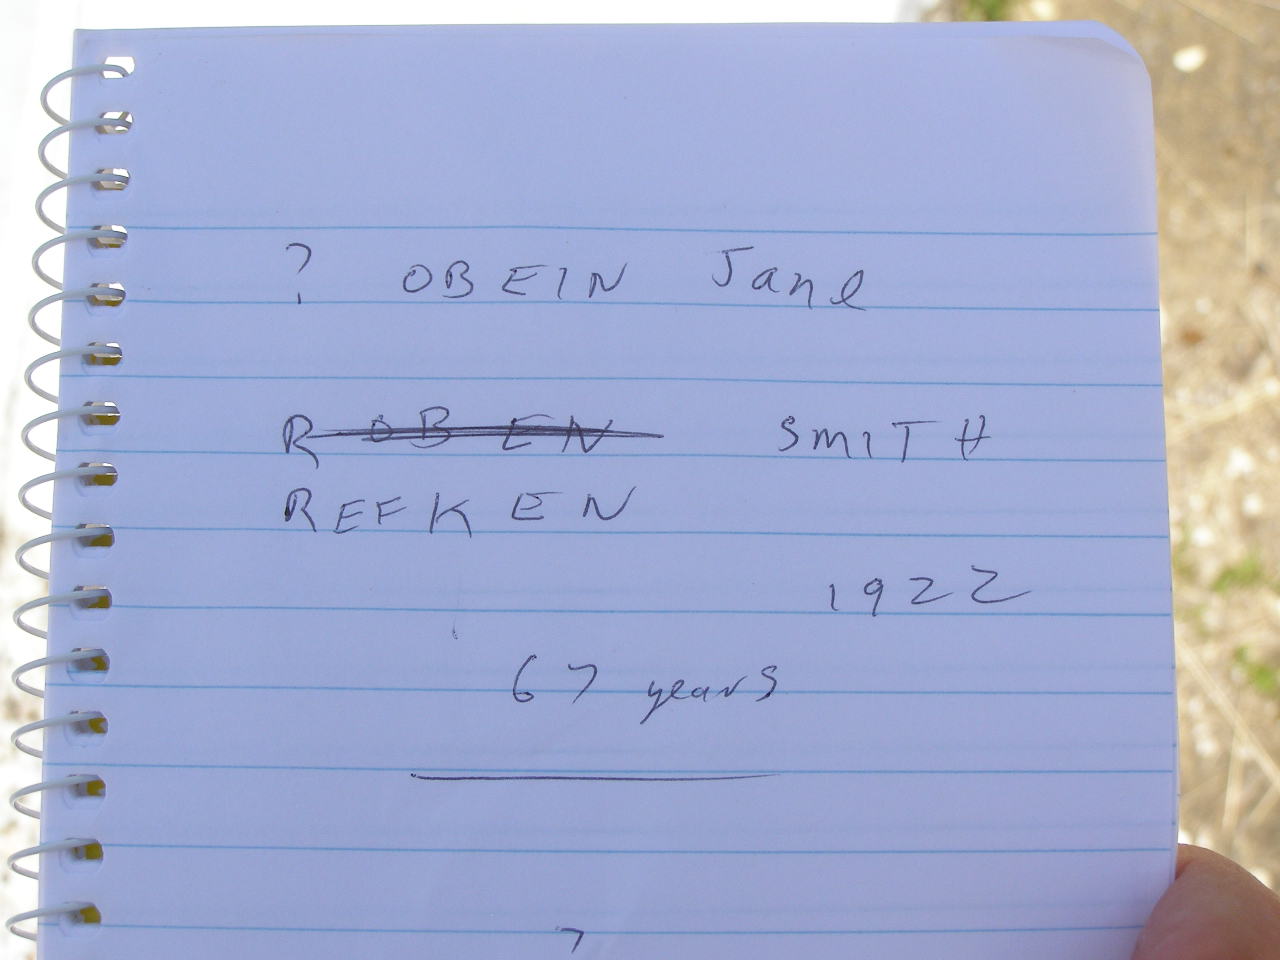 ? OBEIN Jane
R OBEN SMITH
REFKEN
1922
67 years
7